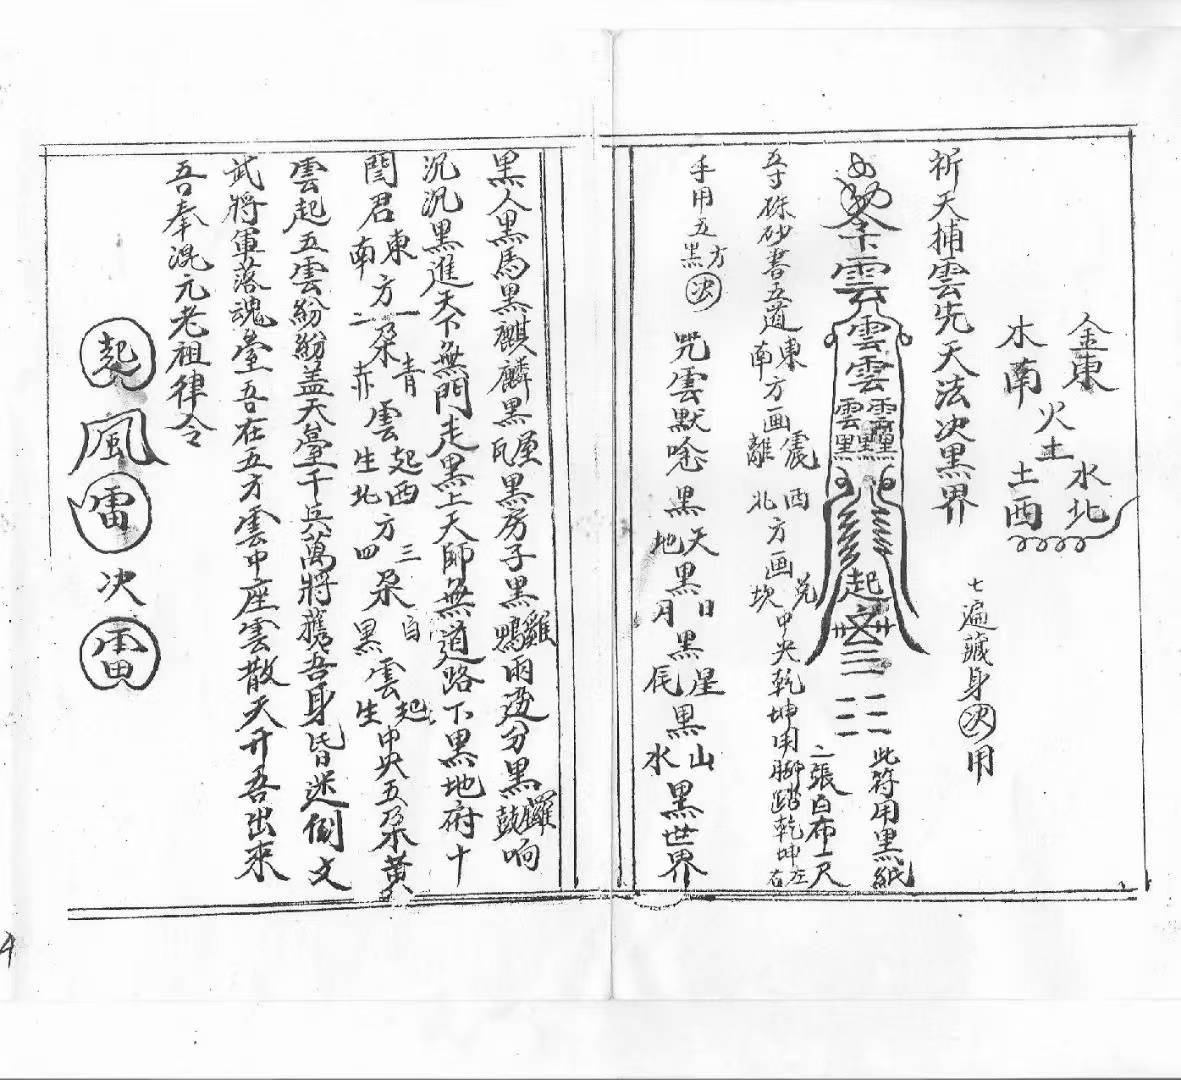 金東
火土
水北
木南
土西
七遍藏身决用
祈天捕雲先天法决黑界
令雲
雲雲
雲黑
起
此符用黑紙
二張白布一尺
五寸硃砂書五道東南方画震離西北方画兑坎中央乾坤用脚踏乾坤左右
手用五方黑决
咒雲默唸黑天地黑日月黑星辰黑山水黑世界
黑人黑馬黑麒麟黑屋瓦黑房子黑雞鴨雨边分黑鑼鼓响
沉沉黑進天下無門走黑上天師無道路下黑地府十
閻君東南方一二朵青赤雲起生西北方三四朵白黑雲起生中央五朵黃
雲起五雲紛紛蓋天臺千兵萬將護吾身皆迷倒文
武將軍落魂臺吾在五方雲中座雲散天开吾出來
吾奉混元老祖律令
起
風
雷
决
雷